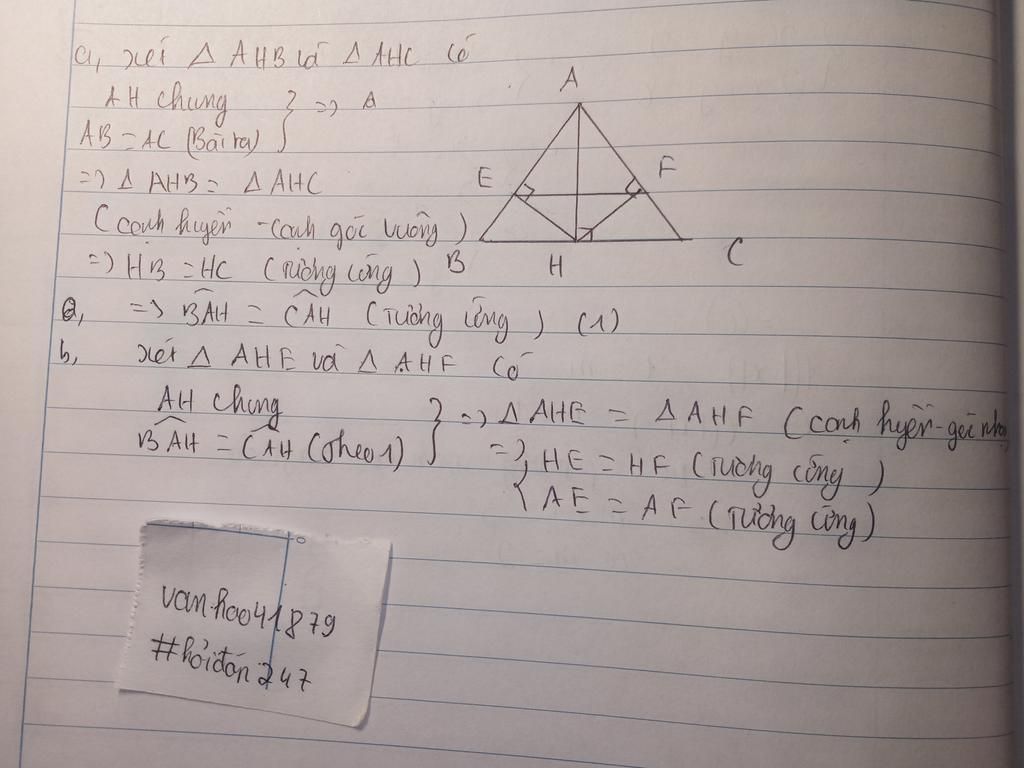 a, xét Δ AHB và Δ AHC có
AH chung } => Δ
AB = AC (Bài ra)
=> Δ AHB = Δ AHC
(cạnh huyền - cạnh góc vuông)
=> HB = HC (Tương ứng)
a, => BAH = CAH (Tương ứng) (1)
b, xét Δ AHE và Δ AHF có
AH chung } => Δ AHE = Δ AHF (cạnh huyền - góc nhọn
BAH = CAH (theo 1) => { HE = HF (Tương ứng)
AE = AF (Tương ứng)
A
E
F
B
H
C
vanhao41879
#hỏiđáp247